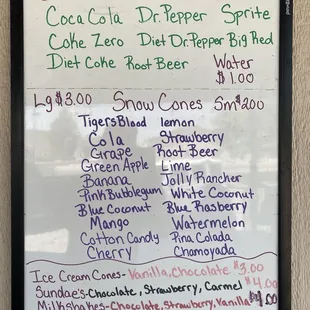 Coca Cola Dr. Pepper Sprite
Coke Zero Diet Dr. Pepper Big Red
Diet Coke Root Beer Water
$1.00
Lg $3.00 Snow Cones Sm $2.00
Tigers Blood lemon
Cola Strawberry
Grape Root Beer
Green Apple Lime
Banana Jolly Rancher
Pink Bubblegum White Coconut
Blue Coconut Blue Rasberry
Mango Watermelon
Cotton Candy Pina Colada
Cherry Chamoyada
Ice Cream Cones - Vanilla, Chocolate $3.00
Sundae's - Chocolate, Strawberry, Carmel $4.00
Milkshakes - Chocolate, Strawberry, Vanilla